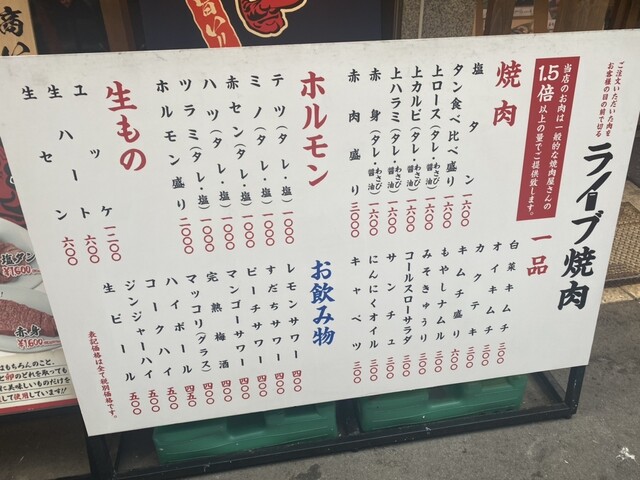 ご注文いただいた肉を
お客様の目の前で切る
ライブ焼肉
当店のお肉は一般的な焼肉屋さんの
1.5倍以上の量でご提供致します。
焼肉
塩タン 一六〇〇
タン食べ比べ盛り 一六〇〇
上ロース(タレ・わさび醤油) 一六〇〇
上カルビ(タレ・わさび醤油) 一六〇〇
上ハラミ(タレ・わさび醤油) 一六〇〇
赤身(タレ・わさび醤油) 一六〇〇
赤肉盛り 三〇〇〇
ホルモン
テツ(タレ・塩) 一〇〇〇
ミノ(タレ・塩) 一〇〇〇
赤セン(タレ・塩) 一〇〇〇
ハツ(タレ・塩) 一〇〇〇
ツラミ(タレ・塩) 一〇〇〇
ホルモン盛り 二〇〇〇
生もの
ユッケ 一二〇〇
生ハート 六〇〇
生セン 六〇〇
一品
白菜キムチ 三〇〇
オイキムチ 三〇〇
カクテキ 三〇〇
キムチ盛り 六〇〇
もやしナムル 三〇〇
みそきゅうり 三〇〇
コールスローサラダ 三〇〇
サンチュ 三〇〇
にんにくオイル 三〇〇
キャベツ 三〇〇
お飲み物
レモンサワー 四〇〇
すだちサワー 四〇〇
ピーチサワー 四〇〇
マンゴーサワー 四〇〇
完熟梅酒 四〇〇
マッコリ(グラス) 四五〇
ハイボール 五〇〇
コークハイ 五〇〇
ジンジャーハイ 五〇〇
生ビール 五〇〇
表記価格は全て税別価格です。
塩タン
¥1,600
赤身
¥1,600